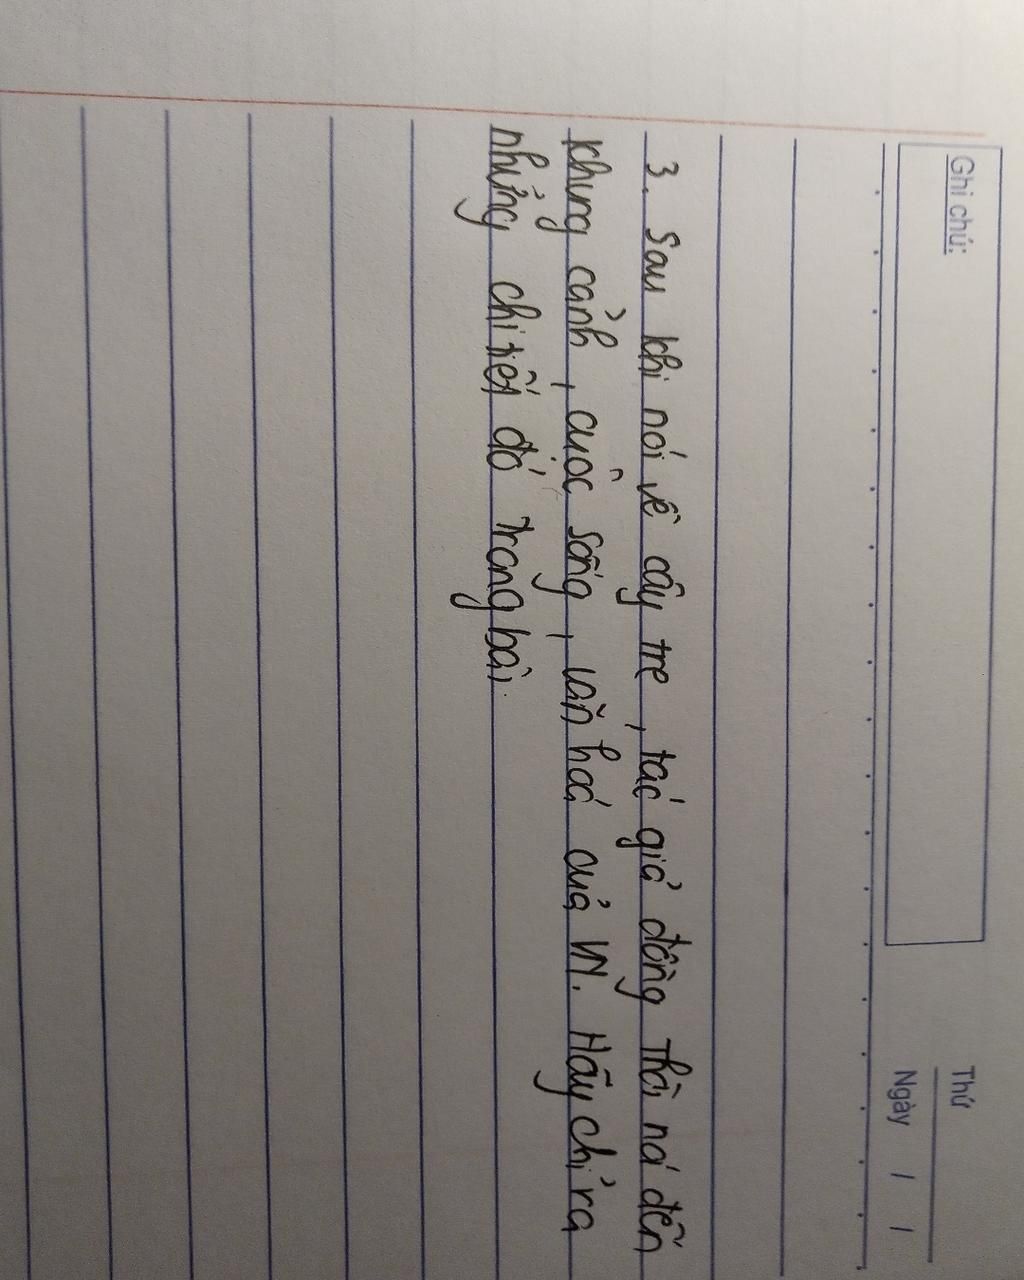 Ghi chú:
Thứ
Ngày / /
3. Sau khi nói về cây tre, tác giả đồng thời nó đến
khung cảnh, cuộc sống, văn hoá của VN. Hãy chỉ ra
những chi tiết đó trong bài.